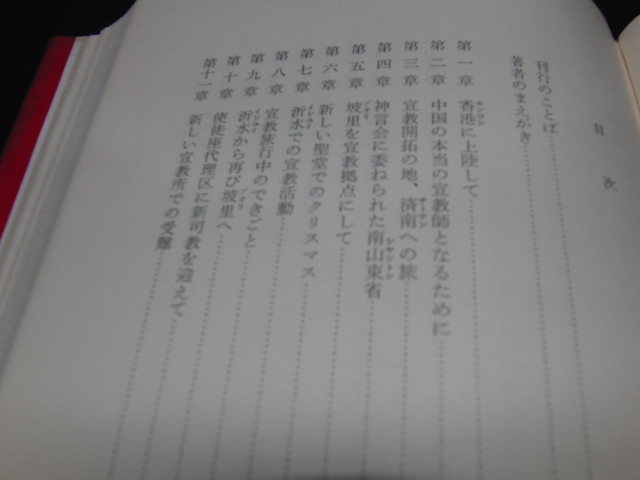 目次
刊行のことば
著者のまえがき
第一章 香港に上陸して
第二章 中国の本当の宣教師となるために
第三章 宣教開拓の地、済南への旅
第四章 神言会に委ねられた南山東省
第五章 坡里を宣教拠点にして
第六章 新しい聖堂でのクリスマス
第七章 沂水での宣教活動
第八章 宣教旅行中のできごと
第九章 沂水から再び坡里へ
第十章 使徒座代理区に新司教を迎えて
第十一章 新しい宣教所での受難